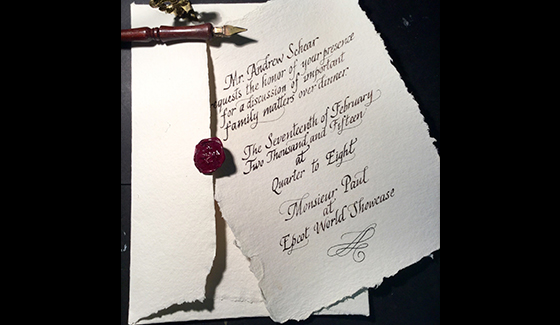 Mr. Andrew Schear
quests the honor of your presence
for a discussion of important
family matters over dinner.
The Seventeenth of February
Two Thousand and Fifteen
at
Quarter to Eight
Monsieur Paul
at
Epcot World Showcase